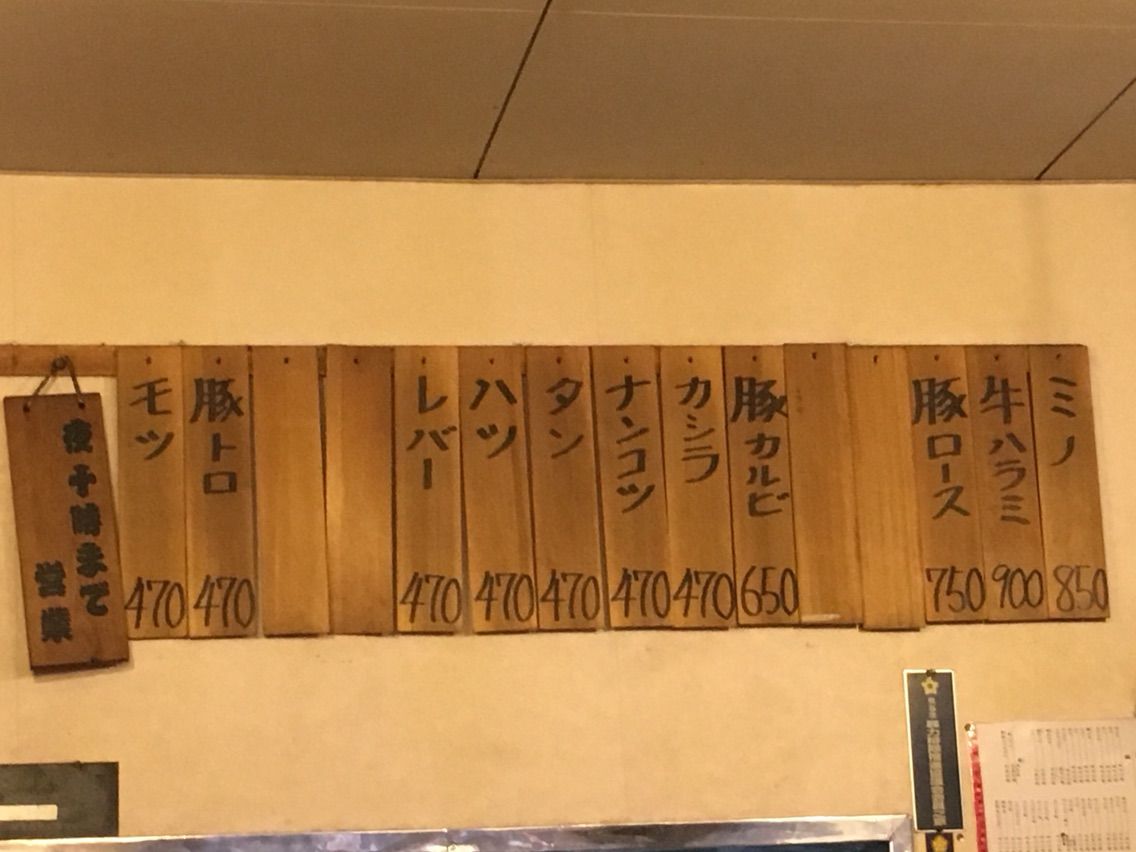 ミノ
850
牛ハラミ
900
豚ロース
750
豚カルビ
650
カシラ
470
ナンコツ
470
タン
470
ハツ
470
レバー
470
豚トロ
470
モツ
470
夜十時まで
営業